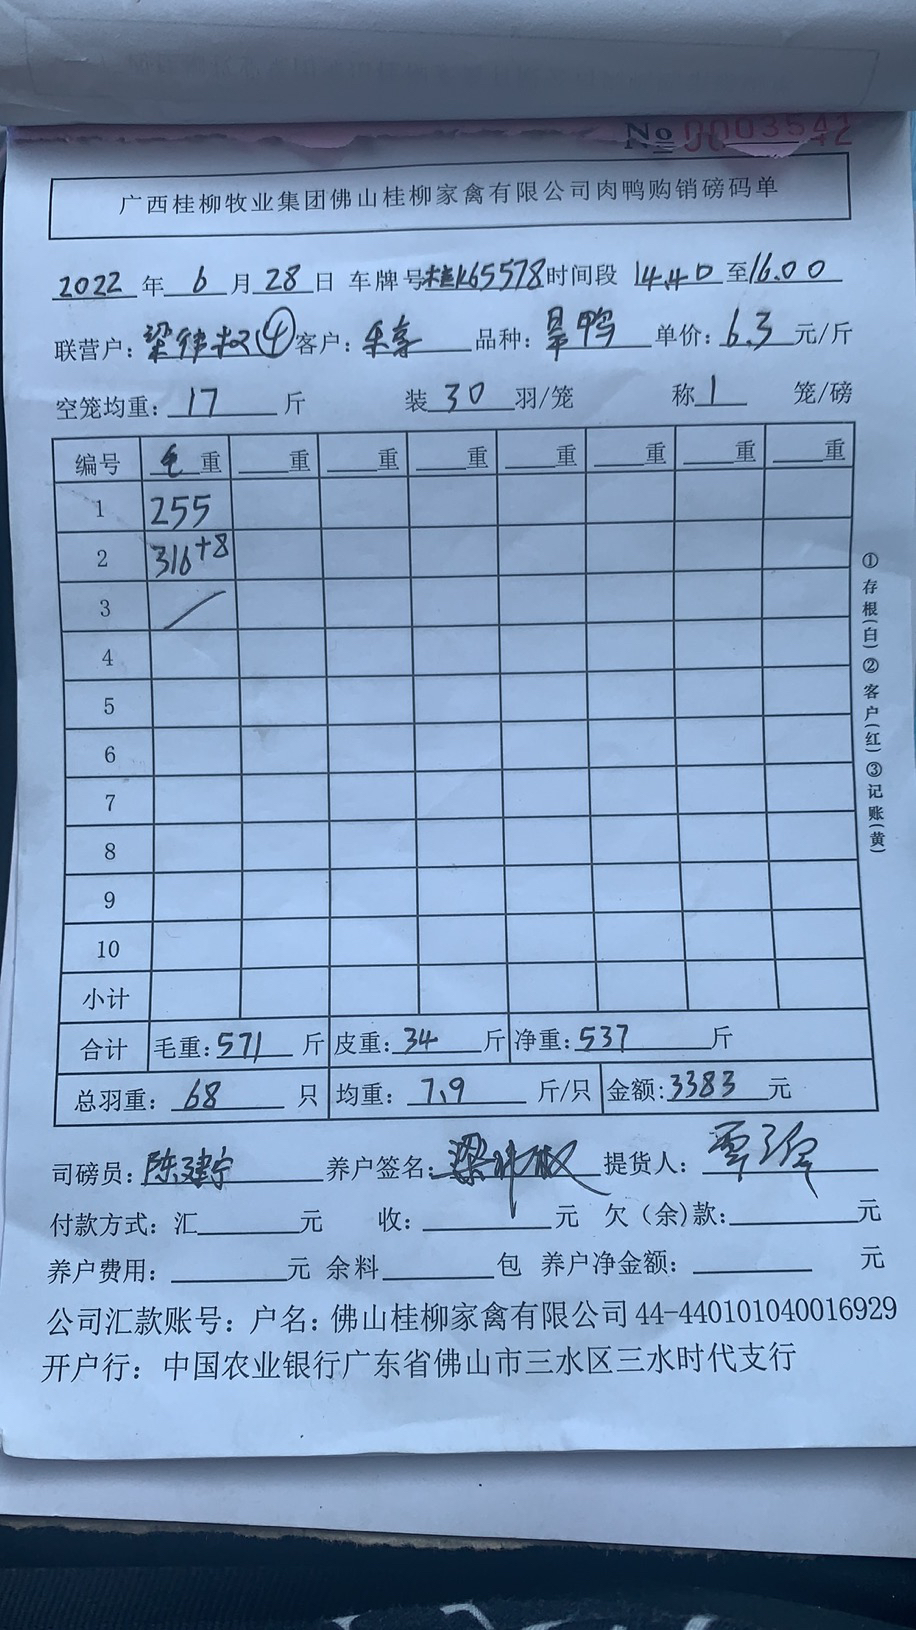 No 0003542
广西桂柳牧业集团佛山桂柳家禽有限公司肉鸭购销磅码单
2022 年 6 月 28 日 车牌号桂K65578时间段 14.40 至16.00
联营户: 梁伟权④ 客户: 品种: 旱鸭 单价: 6.3 元/斤
空笼均重: 17 斤 装 30 羽/笼 称 1 笼/磅
编号 毛重 重 重 重 重 重 重 重
1 255
2 316+8
3 /
4
5
6
7
8
9
10
小计
合计 毛重: 571 斤 皮重: 34 斤 净重: 537 斤
总羽重: 68 只 均重: 7.9 斤/只 金额: 3383 元
司磅员: 陈建宁 养户签名: 梁伟权 提货人:
付款方式: 汇 元 收: 元 欠(余)款: 元
养户费用: 元 余料 包 养户净金额: 元
公司汇款账号: 户名: 佛山桂柳家禽有限公司 44-440101040016929
开户行: 中国农业银行广东省佛山市三水区三水时代支行
①存根(白)②客户(红)③记账(黄)